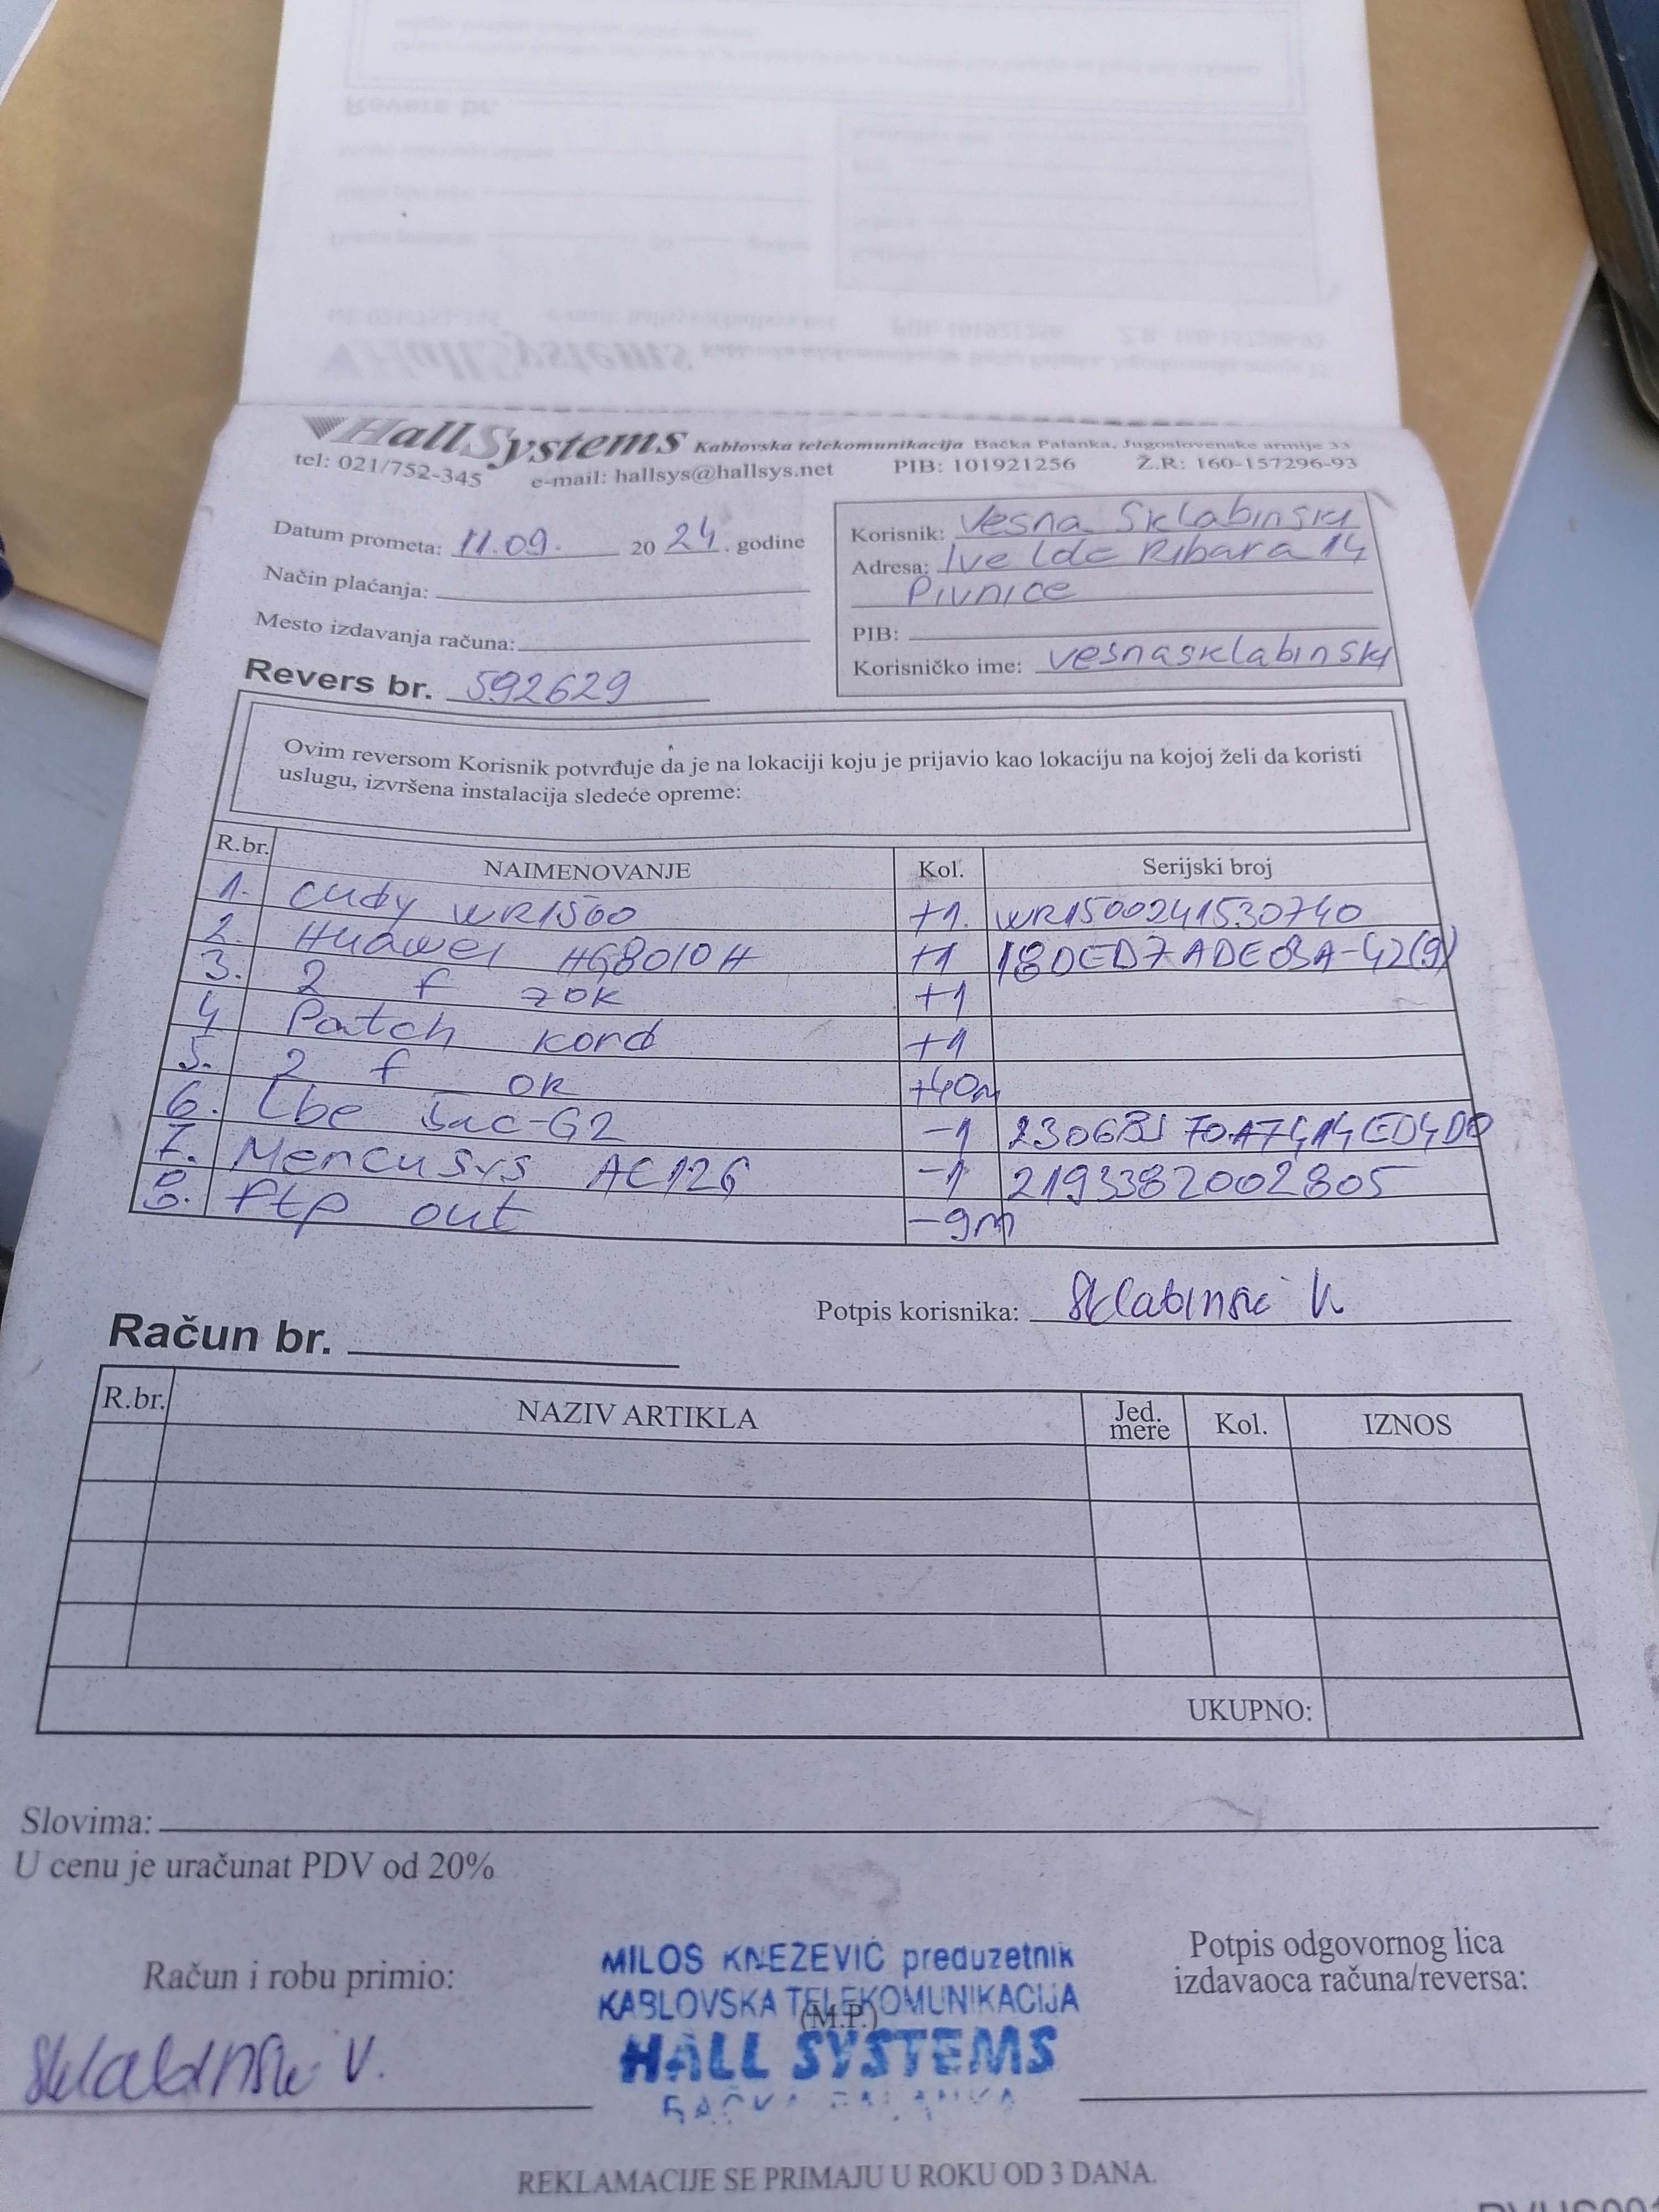 HallSystems Kablovska telekomunikacija Bačka Palanka, Jugoslovenske armije 33
tel: 021/752-345 e-mail: hallsys@hallsys.net PIB: 101921256 Ž.R: 160-157296-93
Datum prometa: 11.09. 20 24. godine
Način plaćanja:
Mesto izdavanja računa:
Revers br. 592629
Korisnik: Vesna Sklabinski
Adresa: Ive Lole Ribara 14
Pivnice
PIB:
Korisničko ime: vesnasklabinski
Ovim reversom Korisnik potvrđuje da je na lokaciji koju je prijavio kao lokaciju na kojoj želi da koristi
uslugu, izvršena instalacija sledeće opreme:
R.br. NAIMENOVANJE Kol. Serijski broj
1. Cudy WR1500 +1. WR1500241530740
2. Huawei HG8010H +1
3. 2 f zok +1
4 Patch kord +1
5. 2 f ok +40m
6. Lbe 5ac-G2 -1
7. Mercusys AC12G -1 2193382002805
8. ftp out -9m
Potpis korisnika: Sklabinski V.
Račun br.
R.br. NAZIV ARTIKLA Jed. mere Kol. IZNOS
UKUPNO:
Slovima:
U cenu je uračunat PDV od 20%
Račun i robu primio:
Sklabinski V.
MILOS KNEZEVIĆ preduzetnik
KABLOVSKA TELEKOMUNIKACIJA
(M.P.)
HALL SYSTEMS
BAČKA PALANKA
Potpis odgovornog lica
izdavaoca računa/reversa:
REKLAMACIJE SE PRIMAJU U ROKU OD 3 DANA.